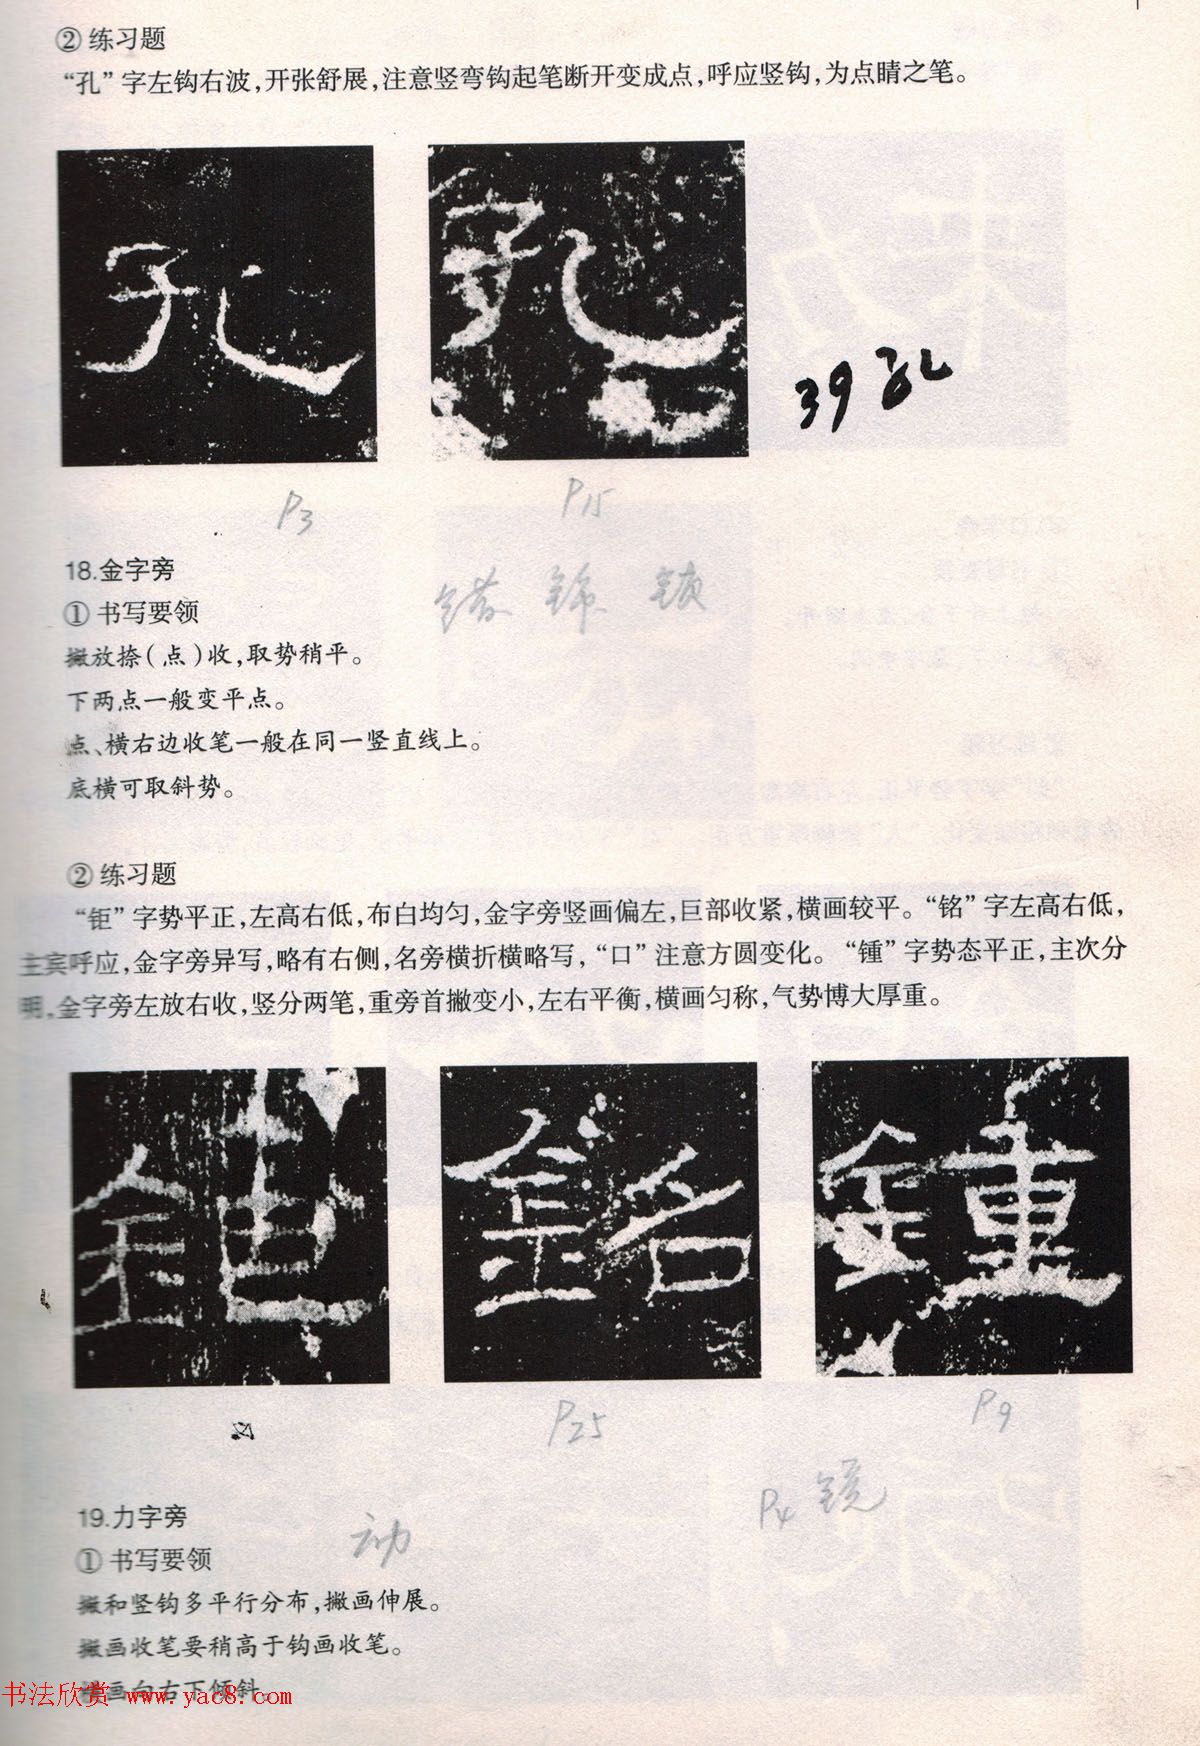 ② 练习题
“孔”字左钩右波，开张舒展，注意竖弯钩起笔断开变成点，呼应竖钩，为点睛之笔。
孔
孔
39 孔
P3
P15
18.金字旁
错 锦 锁
① 书写要领
撇放捺（点）收，取势稍平。
下两点一般变平点。
点、横右边收笔一般在同一竖直线上。
底横可取斜势。
② 练习题
“钜”字势平正，左高右低，布白均匀，金字旁竖画偏左，巨部收紧，横画较平。“铭”字左高右低，
主宾呼应，金字旁异写，略有右侧，名旁横折横略写，“口”注意方圆变化。“锺”字势态平正，主次分
明，金字旁左放右收，竖分两笔，重旁首撇变小，左右平衡，横画匀称，气势博大厚重。
鉅
銘
鍾
P25
P9
P4 镜
19.力字旁
动
① 书写要领
撇和竖钩多平行分布，撇画伸展。
撇画收笔要稍高于钩画收笔。
画向右下倾斜。
书法欣赏 www.yac8.com